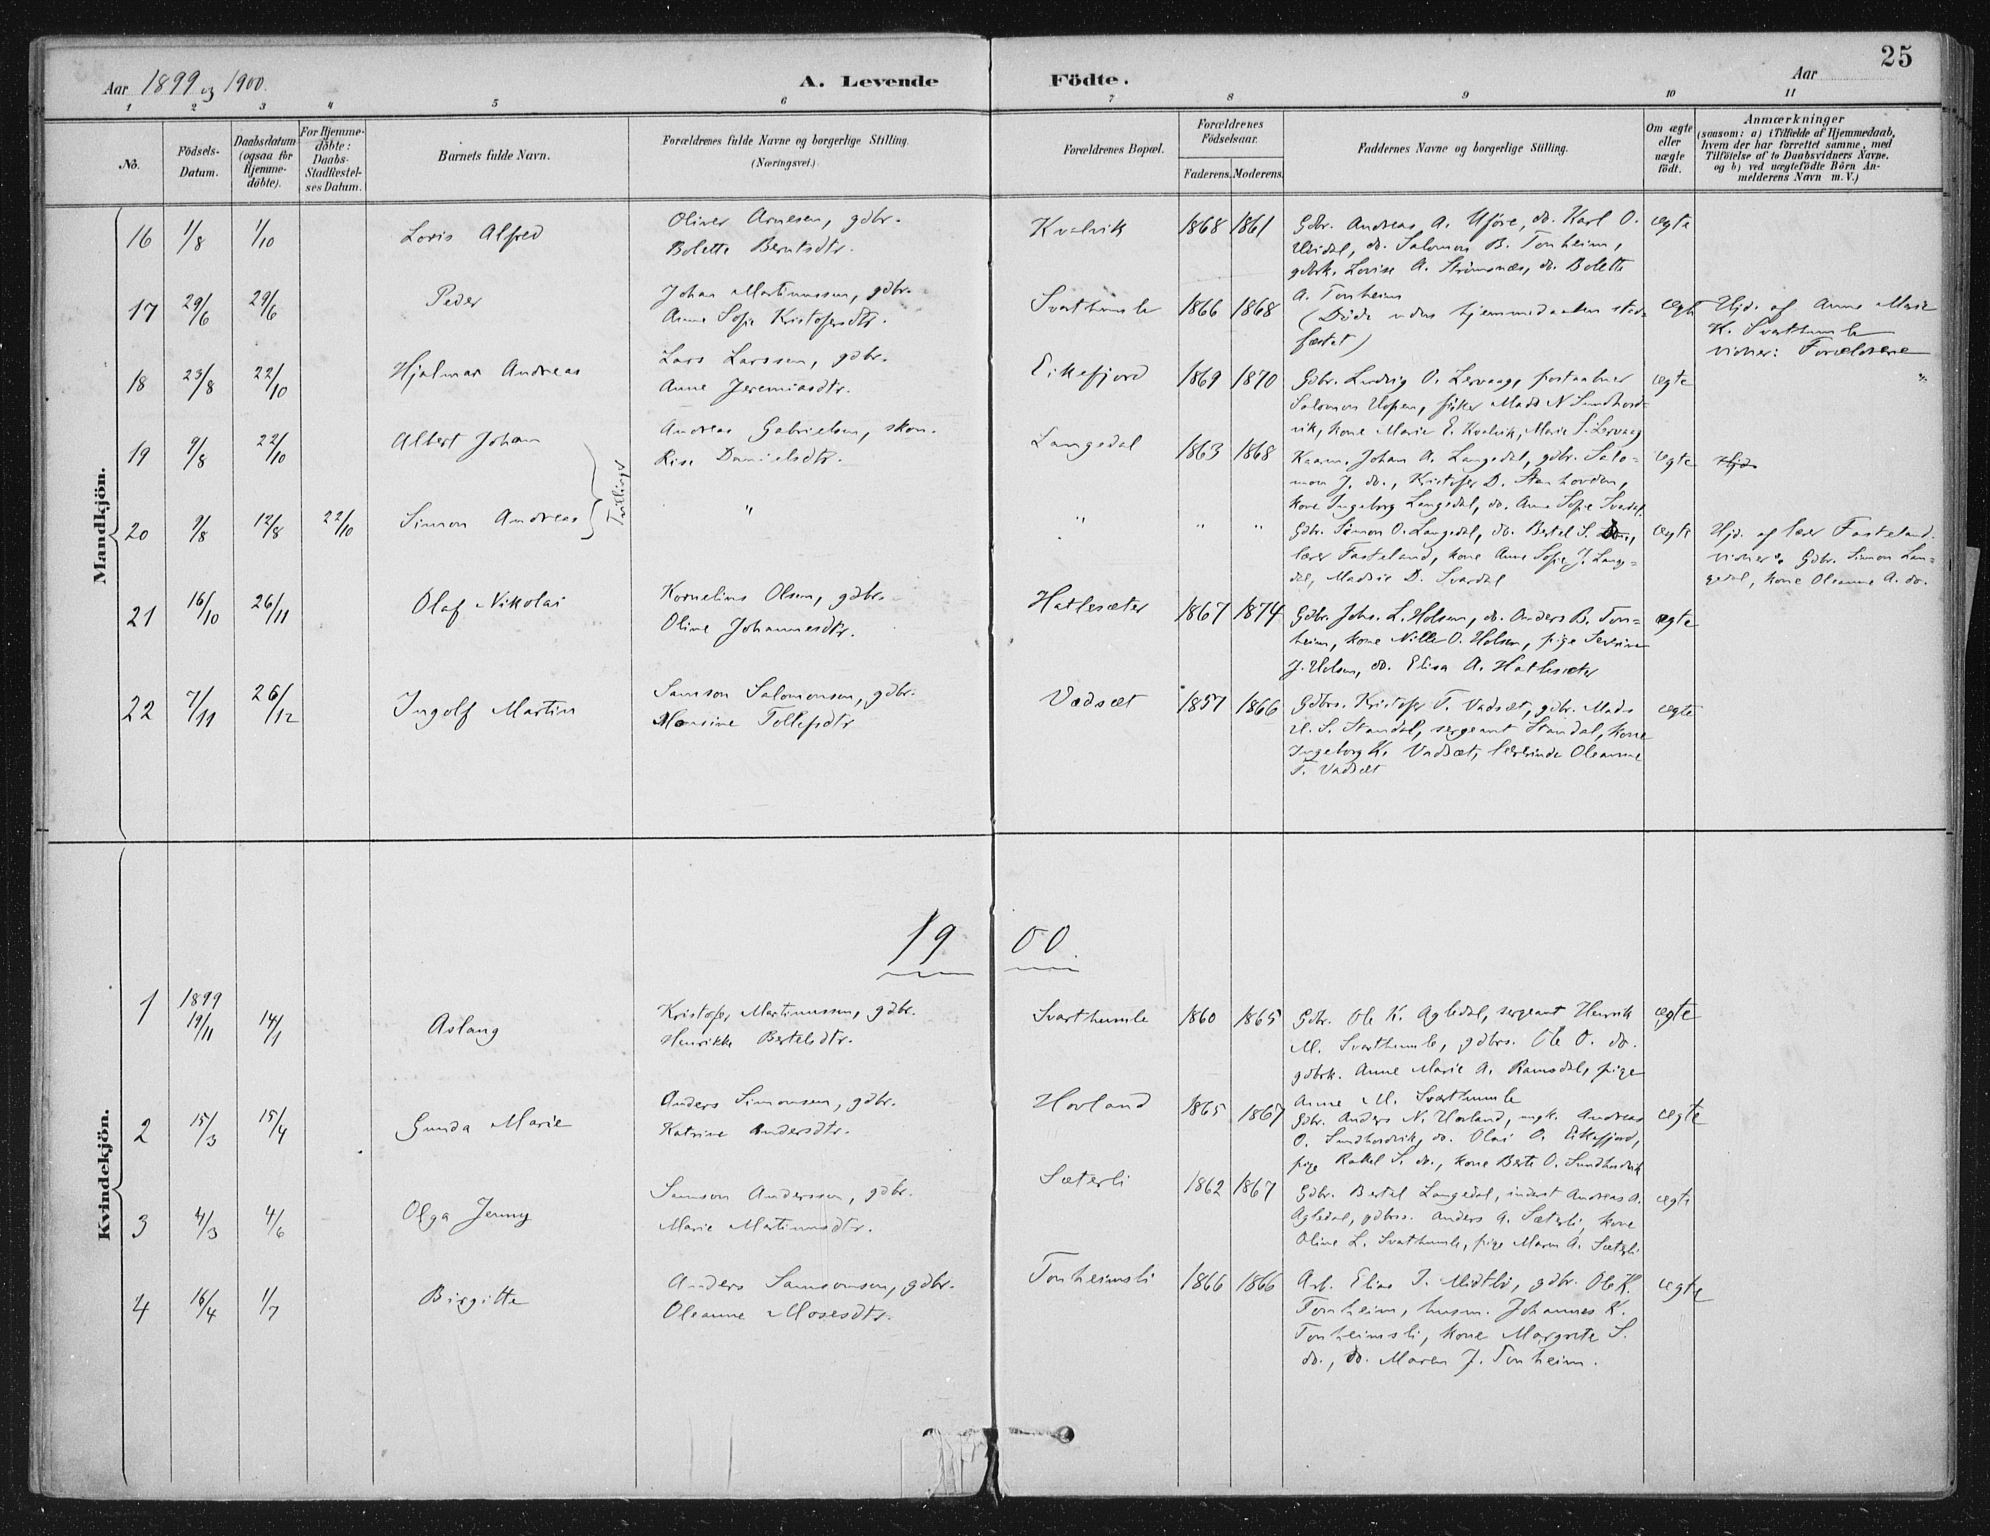 25
Aar 1899 og 1900.
A. Levende Födte.
Aar
1 2 3 4 5 6 7 8 9 10 11
No.
Födsels-Datum.
Daabsdatum (ogsaa for Hjemme-döbte).
For Hjemme-döbte: Daabs-Stadfæstel-ses Datum.
Barnets fulde Navn.
Forældrenes fulde Navne og borgerlige Stilling. (Næringsvei.)
Forældrenes Bopæl.
Forældrenes Födselsaar.
Faderens. Moderens.
Faddernes Navne og borgerlige Stilling.
Om ægte eller uægte födt.
Anmærkninger
(saasom: a) i Tilfælde af Hjemmedaab,
hvem der har forrettet samme, med
Tilföielse af to Daabsvidners Navne,
og b) ved uægtefödte Börn An-
melderens Navn m. V.)
Mandkjön.
16 1/8 1/10 Lovis Alfred
Oliver Arnesen, gdbr.
Bolette Berntsdtr.
Kvalvik 1868 1861
Gdbr. Andreas A. Uföre, do. Karl O.
do. Salomon B. Tonheim,
gdbrk. Lovise A. Strömsnæs, do. Bolette
A. Tonheim
ægte
17 29/6 29/6 Peder
Johan Martinussen, gdbr.
Anne Sofie Kristofersdtr.
Svarthumle 1866 1868
(Döde uden hjemmedaaben stad-
fæstet)
ægte
Hjd. af Anne Marie
K. Svarthumle
vidner: Forældrene
18 23/8 22/10 Hjalmar Andreas
Lars Larssen, gdbr.
Anne Jeremiasdtr.
Eikefjord 1869 1870
Gdbr. Ludvig O. Lervaag, postaabner
Salomon Hopen, fisker Mads N Sundhord-
vik, kone Marie E. Kvalvik, Marie S. Lervaag
ægte "
19 9/8 22/10 Albert Johan
Andreas Gabrielsen, skom.
Danielsdtr.
Langedal 1863 1868
Johan A. Langedal, gdbr. Salo-
mon J. do., Kristofer D. Stenhovden,
kone Ingeborg Langedal, do. Anne Sofie Svardal.
ægte Hjd.
Tvillinger
20 9/8 12/8 22/10 Simon Andreas
" " " "
Gdbr. Simon O. Langedal, do. Bertel S. do.,
lærer Fasteland, kone Anne Sofie J. Lange-
dal, D. Svardal
ægte
Hjd. af lærer Fasteland.
vidner: Gdbr. Simon Lan-
gedal, kone Oleanne A. do.
21 16/10 26/11 Olaf Nikolai
Kornelius Olsen, gdbr.
Oline Johannesdtr.
Hatlesæter 1867 1874
Gdbr. Johs. L. Holsen, do. Anders B. Ton-
heim, kone Nille O. Holsen, pige Severine
J. Holsen, do. Elisa A. Hatlesæter
ægte
22 7/11 26/12 Ingolf Martin
Samson Salomonsen, gdbr.
Monsine Tollefsdtr
Vadsæt 1857 1866
Gdbrs. Kristofer T. Vadsæt, gdbr. Mads
S. Standal, sergeant Standal, kone
Ingeborg K. Vadsæt, lærerinde Oleanne
T. Vadsæt
ægte
1900.
Kvindekjön.
1 1899 19/11 14/1 Aslaug
Kristofer Martinussen, gdbr.
Henrikke Bertelsdtr.
Svarthumle 1860 1865
Gdbr. Ole K. Agledal, sergeant Henrik
M. Svarthumle, gdbrs. Ole O. do.
gdbrk. Anne Marie A. Ramsdal, pige
Anne M. Svarthumle
ægte
2 15/3 15/4 Gunda Marie
Anders Simonsen, gdbr.
Katrine Andersdtr.
Hovland 1865 1867
Gdbr. Anders N. Hovland, ungk. Andreas
O. Sundhordvik, do. Olai O. Eikefjord,
pige Rakel S. do., kone Berte O. Sundhordvik
ægte
3 4/3 4/6 Olga Jenny
Samson Anderssen, gdbr.
Marie Martinusdtr.
Sæterli 1862 1867
Gdbr. Bertel Langedal, inderst Andreas A.
Agledal, gdbrss. Anders A. Sæterli, kone
Oline L. Svarthumle, pige Maren A. Sæterli
ægte
4 16/4 1/7 Birgitte
Anders Samsonsen, gdbr.
Oleanne Mosesdtr.
Tonheimsli 1866 1866
Arb. Elias J. Midtbö, gdbr. Ole K.
Tonheim, husm. Johannes K.
Tonheimsli, kone Margrete S.
do., do. Maren J. Tonheim.
ægte